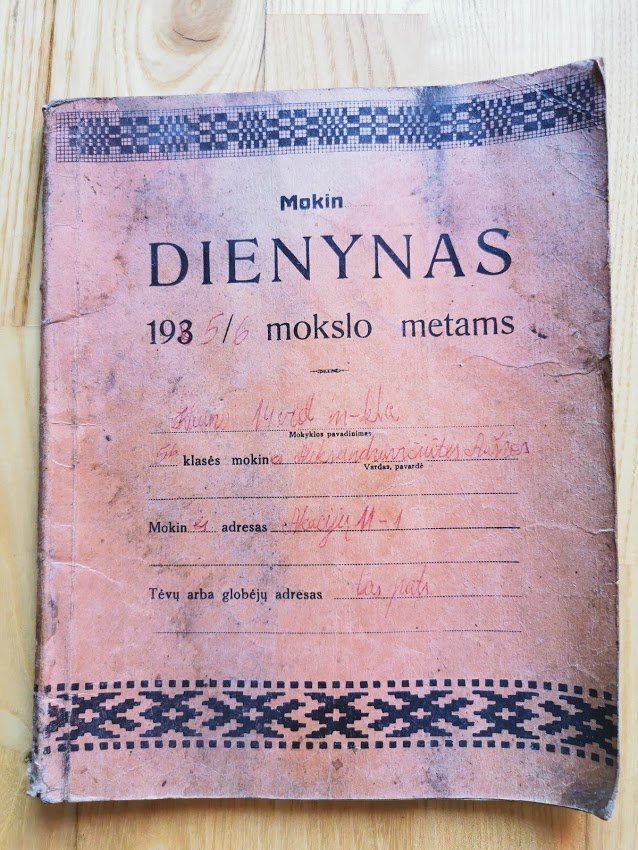 Mokin
DIENYNAS
1985/6 mokslo metams
14 vid m-kla
Mokyklos pavadinimas
5b klasės mokinės Aleksandravičiūtės
Vardas, pavardė
Mokinės adresas Akacijų 11-1
Tėvų arba globėjų adresas tas pats